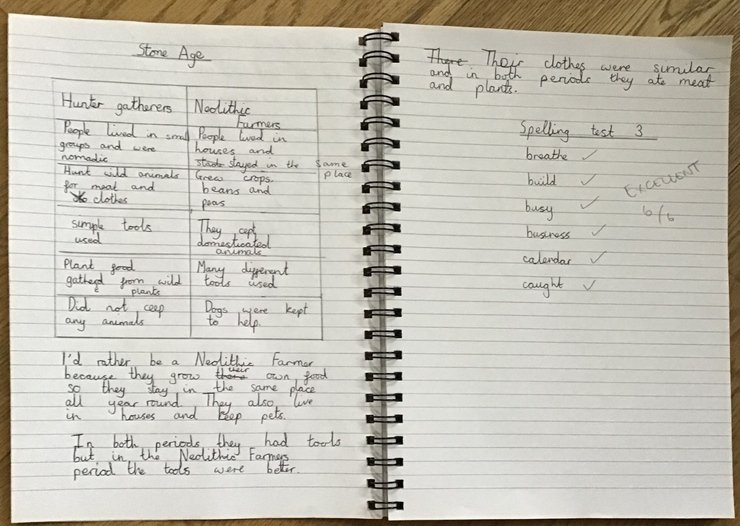 Stone Age
Hunter gatherers
Neolithic
Farmers
People lived in small
groups and were
nomadic
People lived in
houses and
stayed in the same
place
Hunt wild animals
for meat and
clothes
Grew crops.
beans and
peas
simple tools
used
They cept
domesticated
animals
Plant food
gatherd from wild
plants
Many different
tools used
Did not ceep
any animals
Dogs were kept
to help.
I'd rather be a Neolithic Farmer
because they grow their own food
so they stay in the same place
all year round. They also live
in houses and keep pets.
In both periods they had tools
but in the Neolithic Farmers
period the tools were better.
There Their clothes were similar
and in both periods they ate meat
and plants.
Spelling test 3
breathe ✓
build ✓
busy ✓
business ✓
calendar ✓
caught ✓
EXCELLENT
6/6